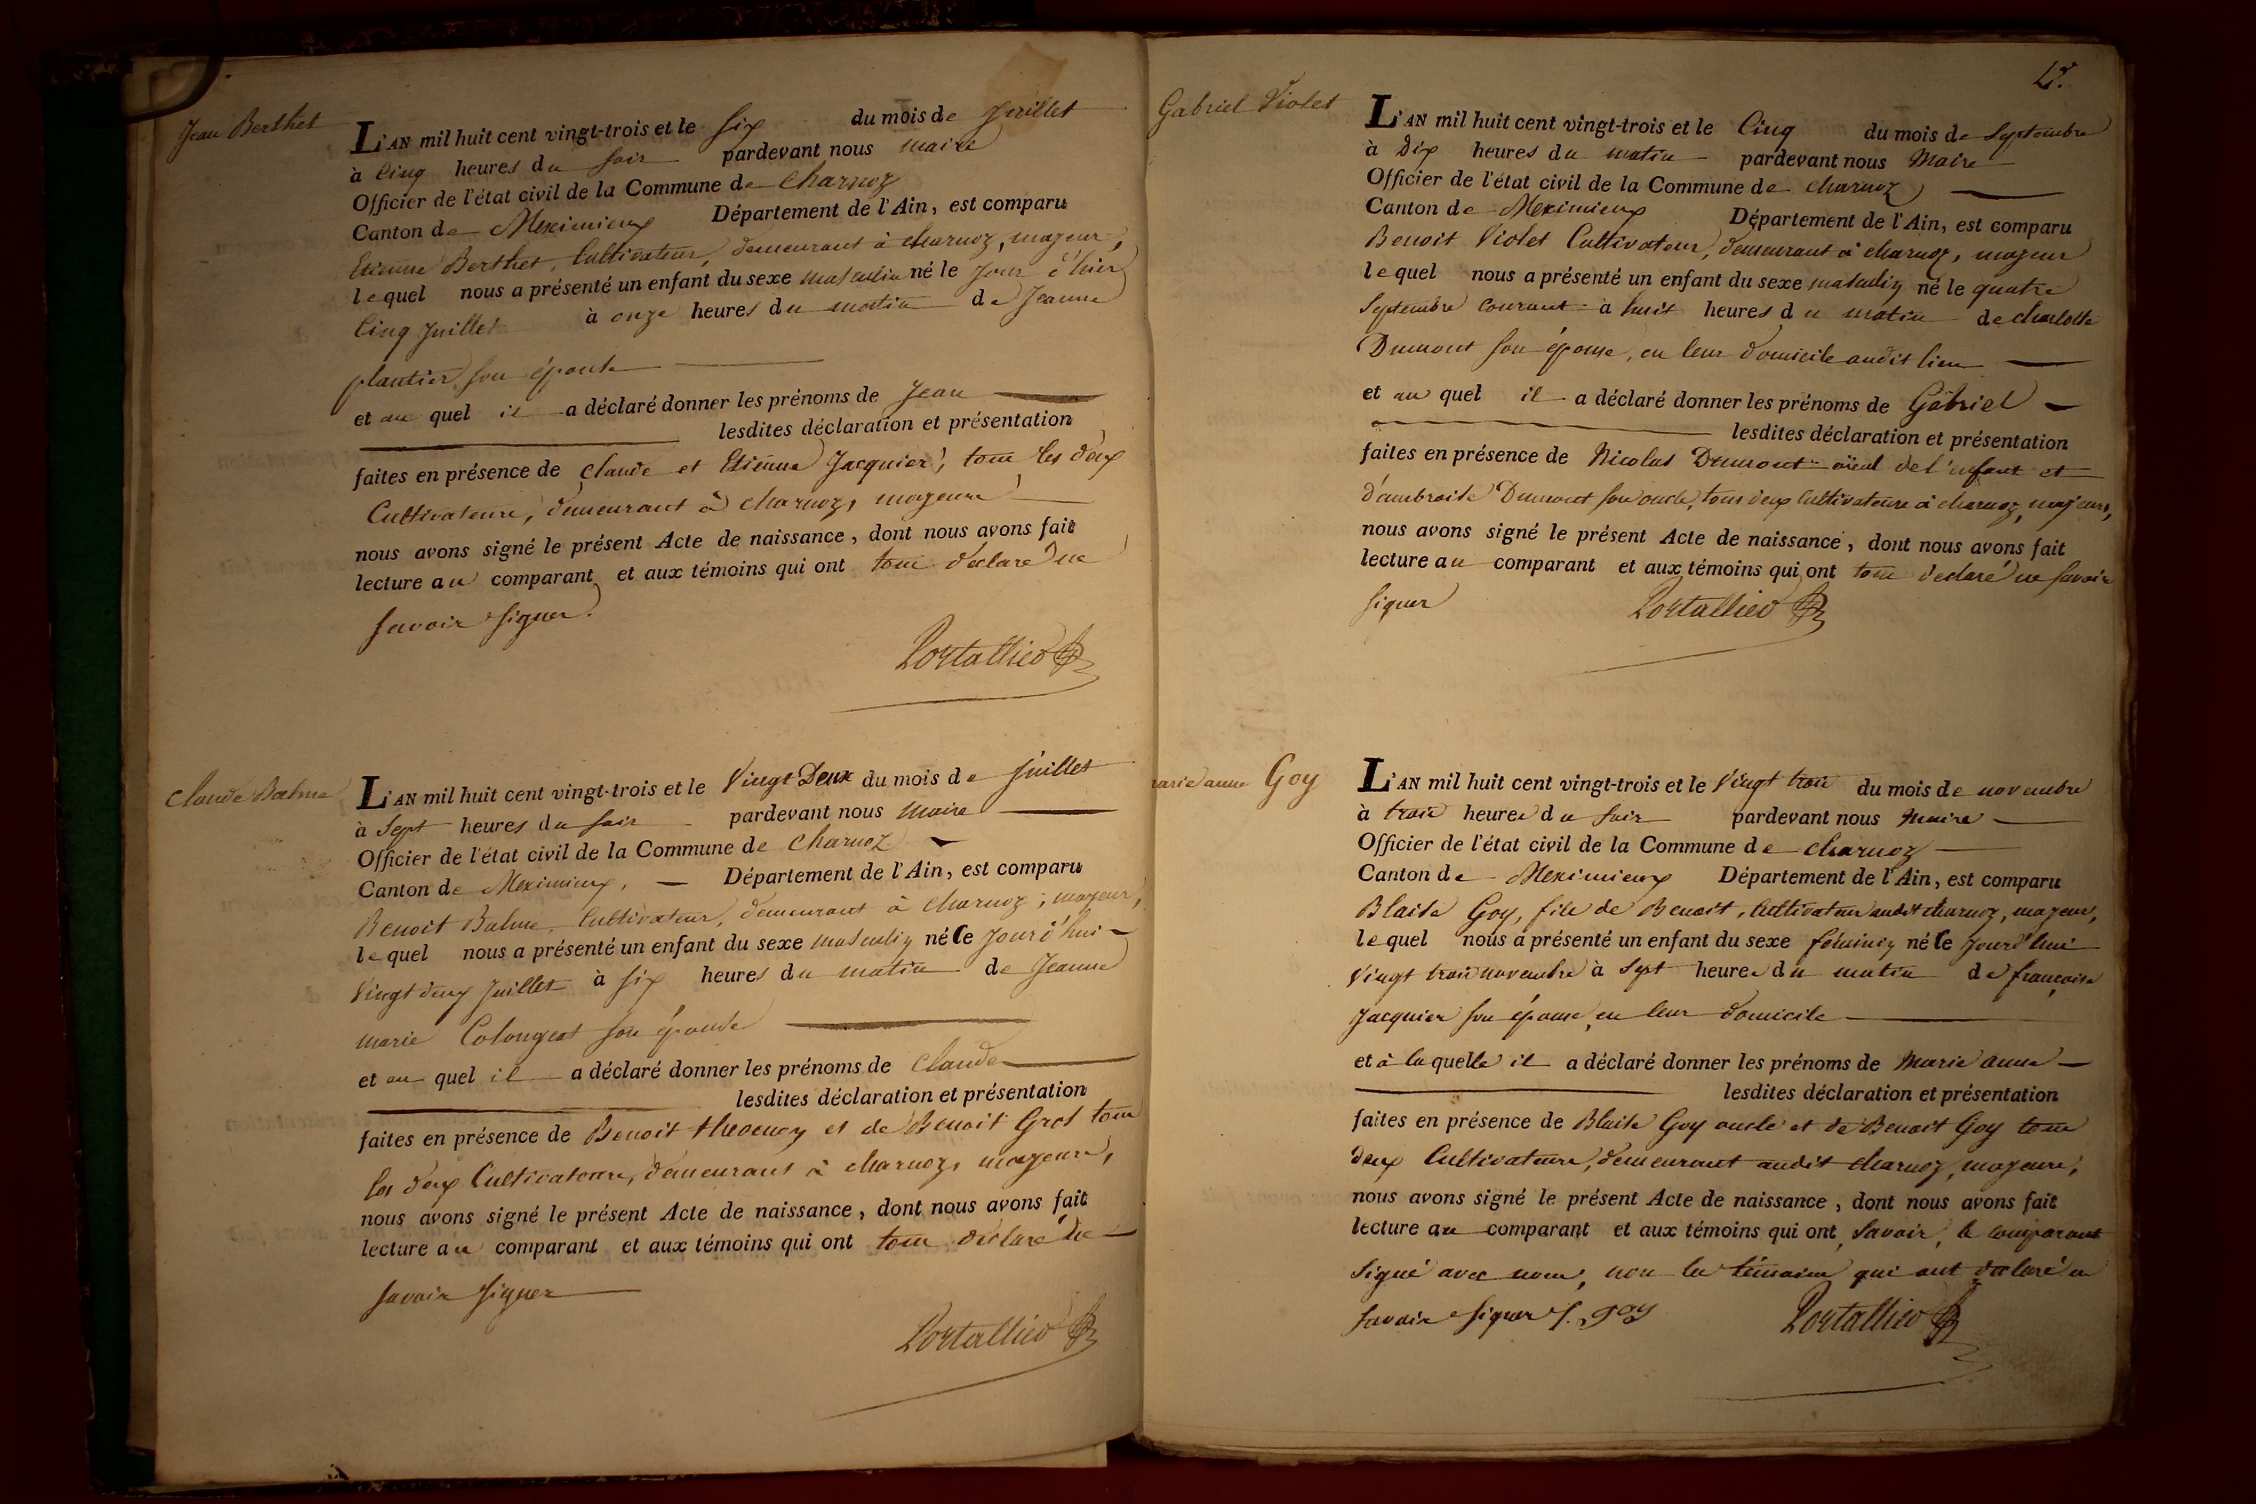 Jean Berthet
L'AN mil huit cent vingt-trois et le six du mois de Juillet
à Cinq heures du soir pardevant nous maire
Officier de l'état civil de la Commune de Charnoz
Canton de Meximieux Département de l'Ain, est comparu
Etienne Berthet, Cultivateur, demeurant à charnoz, majeur,
lequel nous a présenté un enfant du sexe masculin né le jour d'hier
Cinq Juillet à onze heures du matin de Jeanne
plantier son épouse
et au quel il a déclaré donner les prénoms de Jean
lesdites déclaration et présentation
faites en présence de Claude et Etienne Jacquier, tous les deux
Cultivateurs, demeurant à charnoz, majeurs
nous avons signé le présent Acte de naissance, dont nous avons fait
lecture au comparant et aux témoins qui ont tous déclaré ne
savoir signer.
Portallier
Claude Balme
L'AN mil huit cent vingt-trois et le Vingt Deux du mois de Juillet
à Sept heures du soir pardevant nous Maire
Officier de l'état civil de la Commune de Charnoz
Canton de Meximieux, Département de l'Ain, est comparu
Benoit Balme, Cultivateur, demeurant à charnoz, majeur,
lequel nous a présenté un enfant du sexe masculin né le jourd'hui
Vingt deux Juillet à six heures du matin de Jeanne
marie Colongeat son épouse
et au quel il a déclaré donner les prénoms de Claude
lesdites déclaration et présentation
faites en présence de Benoit thevenoy et de Benoit Gros tous
les deux Cultivateurs, demeurant à charnoz, majeurs,
nous avons signé le présent Acte de naissance, dont nous avons fait
lecture au comparant et aux témoins qui ont tous déclaré ne
savoir signer
Portallier
Gabriel Violet
L'AN mil huit cent vingt-trois et le Cinq du mois de Septembre
à Dix heures du matin pardevant nous Maire
Officier de l'état civil de la Commune de charnoz
Canton de Meximieux Département de l'Ain, est comparu
Benoit Violet Cultivateur, demeurant à charnoz, majeur
lequel nous a présenté un enfant du sexe masculin né le quatre
Septembre courant à huit heures du matin de charlotte
Dumont son épouse, en leur domicile audit lieu
et au quel il a déclaré donner les prénoms de Gabriel
lesdites déclaration et présentation
faites en présence de Nicolas Dumont aïeul de l'enfant et
d'ambroise Dumont son oncle, tous deux Cultivateurs à charnoz, majeurs,
nous avons signé le présent Acte de naissance, dont nous avons fait
lecture au comparant et aux témoins qui ont tous déclaré ne savoir
signer
Portallier
marie anne Goy
L'AN mil huit cent vingt-trois et le Vingt trois du mois de novembre
à trois heures du soir pardevant nous Maire
Officier de l'état civil de la Commune de charnoz
Canton de Meximieux Département de l'Ain, est comparu
Blaise Goy, fils de Benoit, Cultivateur audit charnoz, majeur,
lequel nous a présenté un enfant du sexe féminin né le jourd'hui
Vingt trois novembre à sept heures du matin de françoise
Jacquier son épouse, en leur domicile
et à laquelle il a déclaré donner les prénoms de Marie anne
lesdites déclaration et présentation
faites en présence de Blaise Goy oncle et de Benoit Goy tous
deux Cultivateurs, demeurant audit charnoz, majeurs,
nous avons signé le présent Acte de naissance, dont nous avons fait
lecture au comparant et aux témoins qui ont, savoir, le comparant
signé avec nous, non les témoins qui ont déclaré ne
savoir signer goy
Portallier